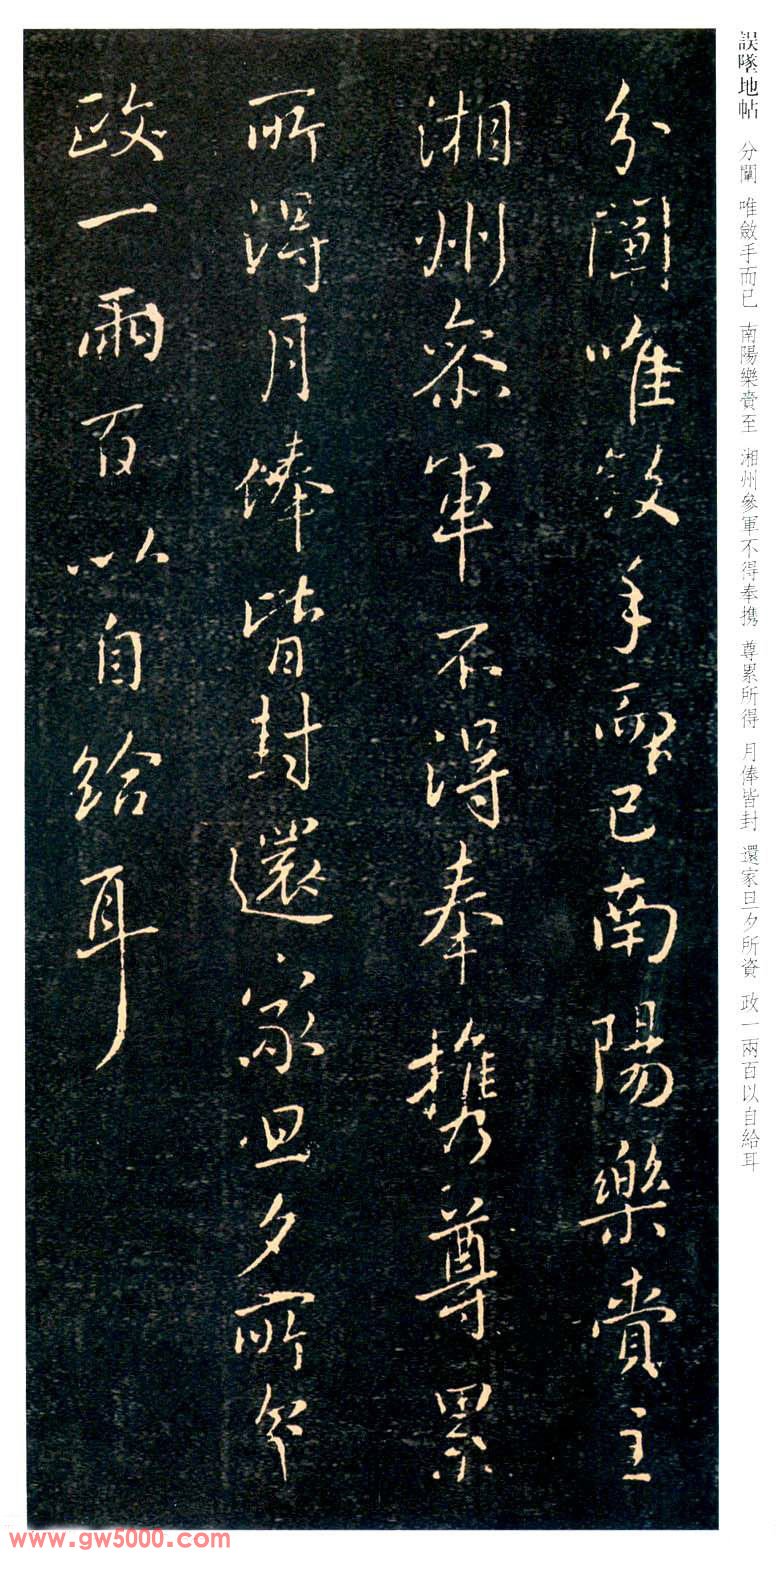 誤墜地帖 分闡 唯斂手而已 南陽樂賞至 湘州參軍不得奉携 尊累所得 月俸皆封 還家旦夕所資 政一兩百以自給耳
分闡唯斂手而已南陽樂賞主
湘州參軍不得奉携尊累
所得月俸皆封還家旦夕所
政一兩百以自給耳
www.gw5000.com